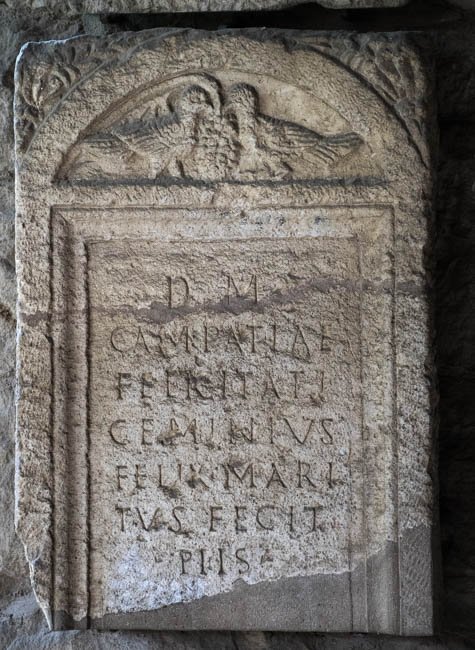 D M
CAMPATIAE
FELICITATI
GEMINIVS
FELIX·MARI
TVS FECIT
PIIS